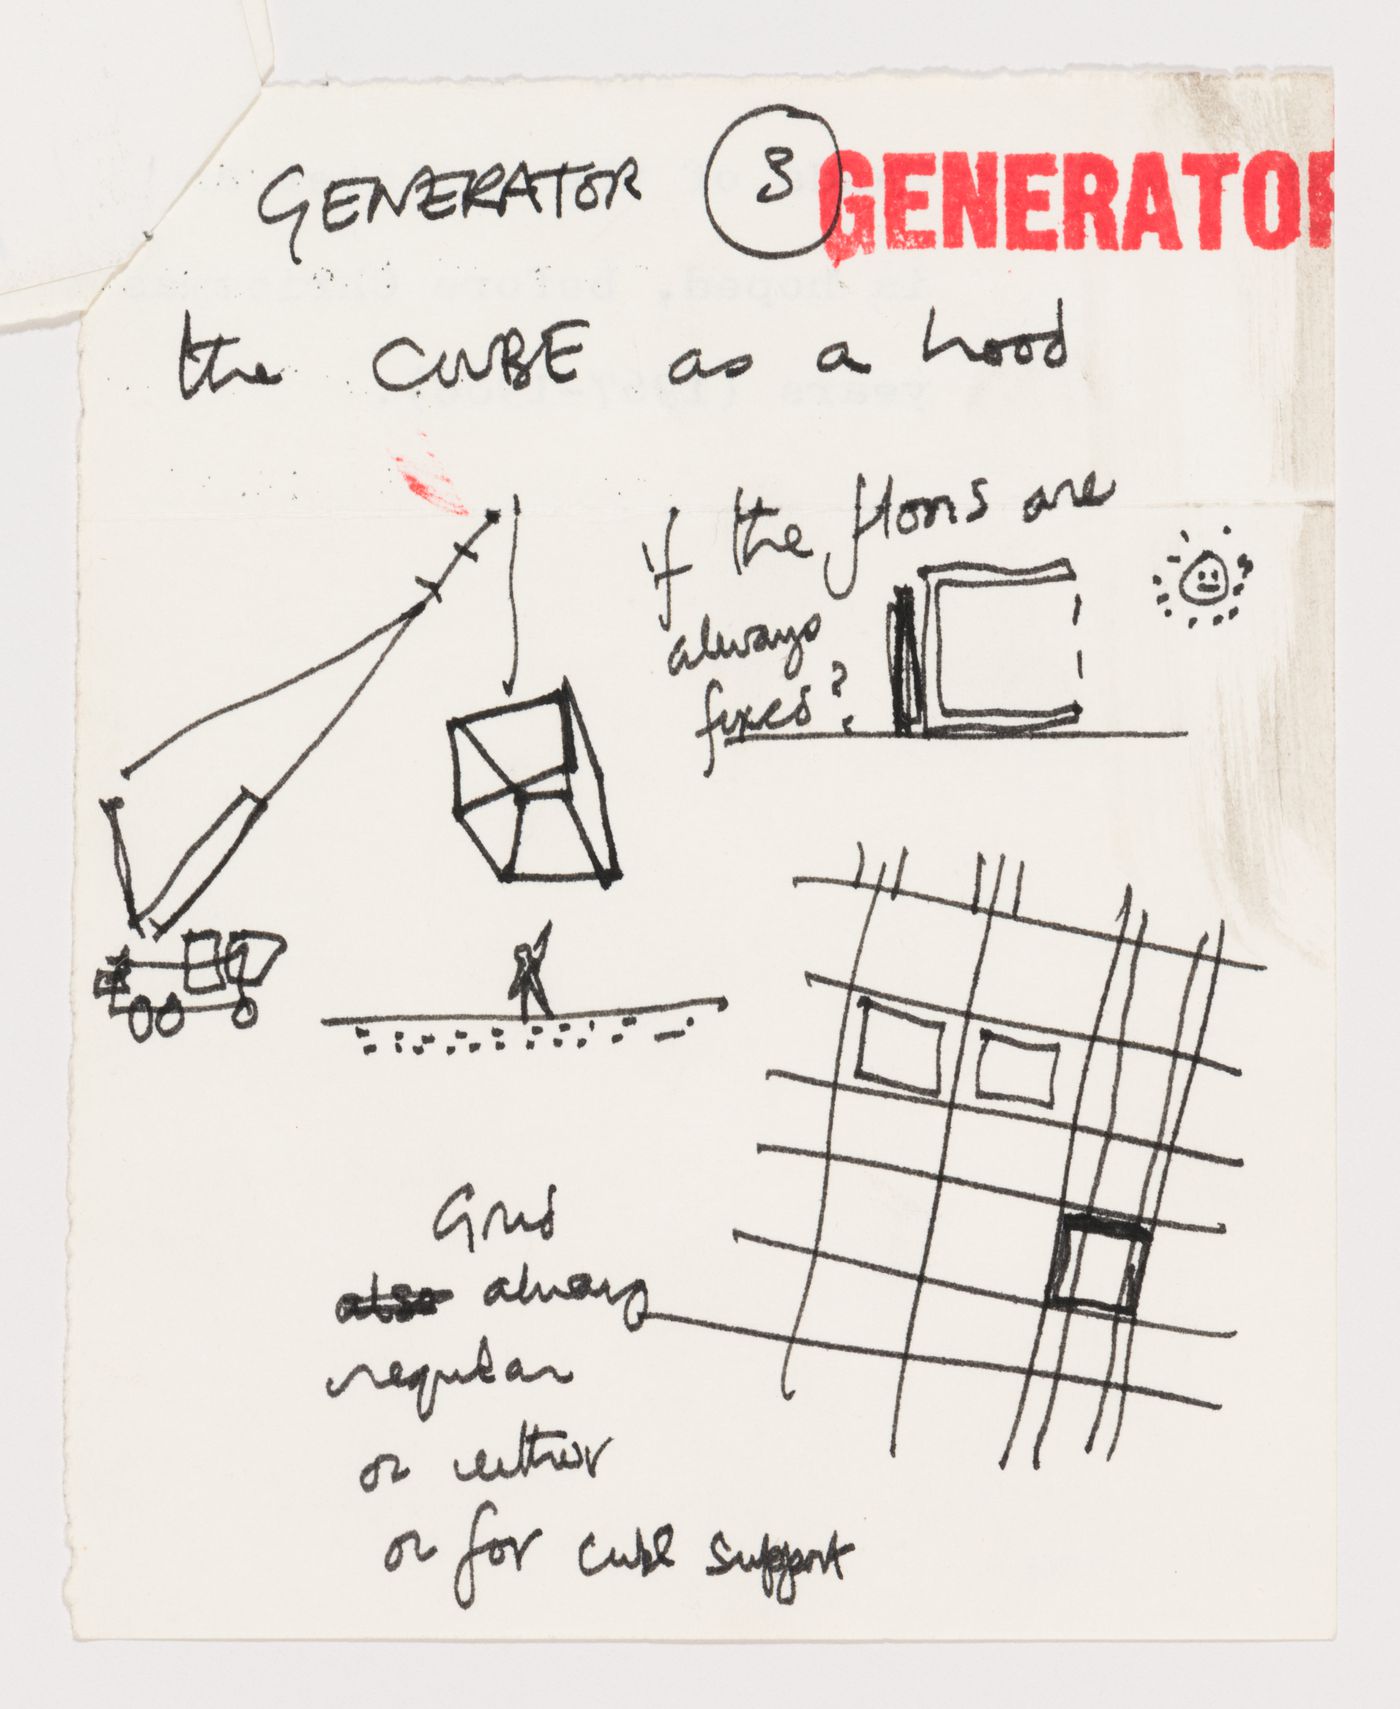 GENERATOR 3 GENERATOR
the CUBE as a hood
if the floors are
always
fixed?
Grid
also always
regular
or either
or for cube support